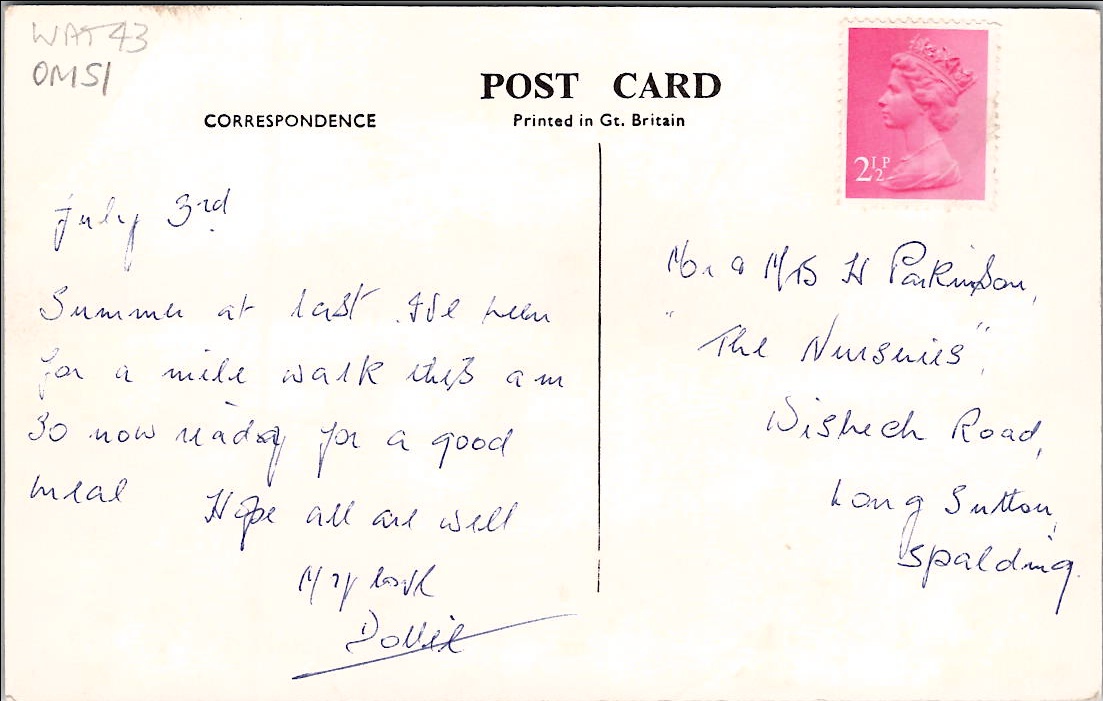 WAT43
OM51
POST CARD
CORRESPONDENCE
Printed in Gt. Britain
2½P
July 3rd
Summer at last. I've been
for a mile walk this am
So now ready for a good
meal
Hope all are well
My love
Dollie
Mr & Mrs H Parkinson,
"The Nurseries",
Wisbech Road,
Long Sutton,
Spalding.